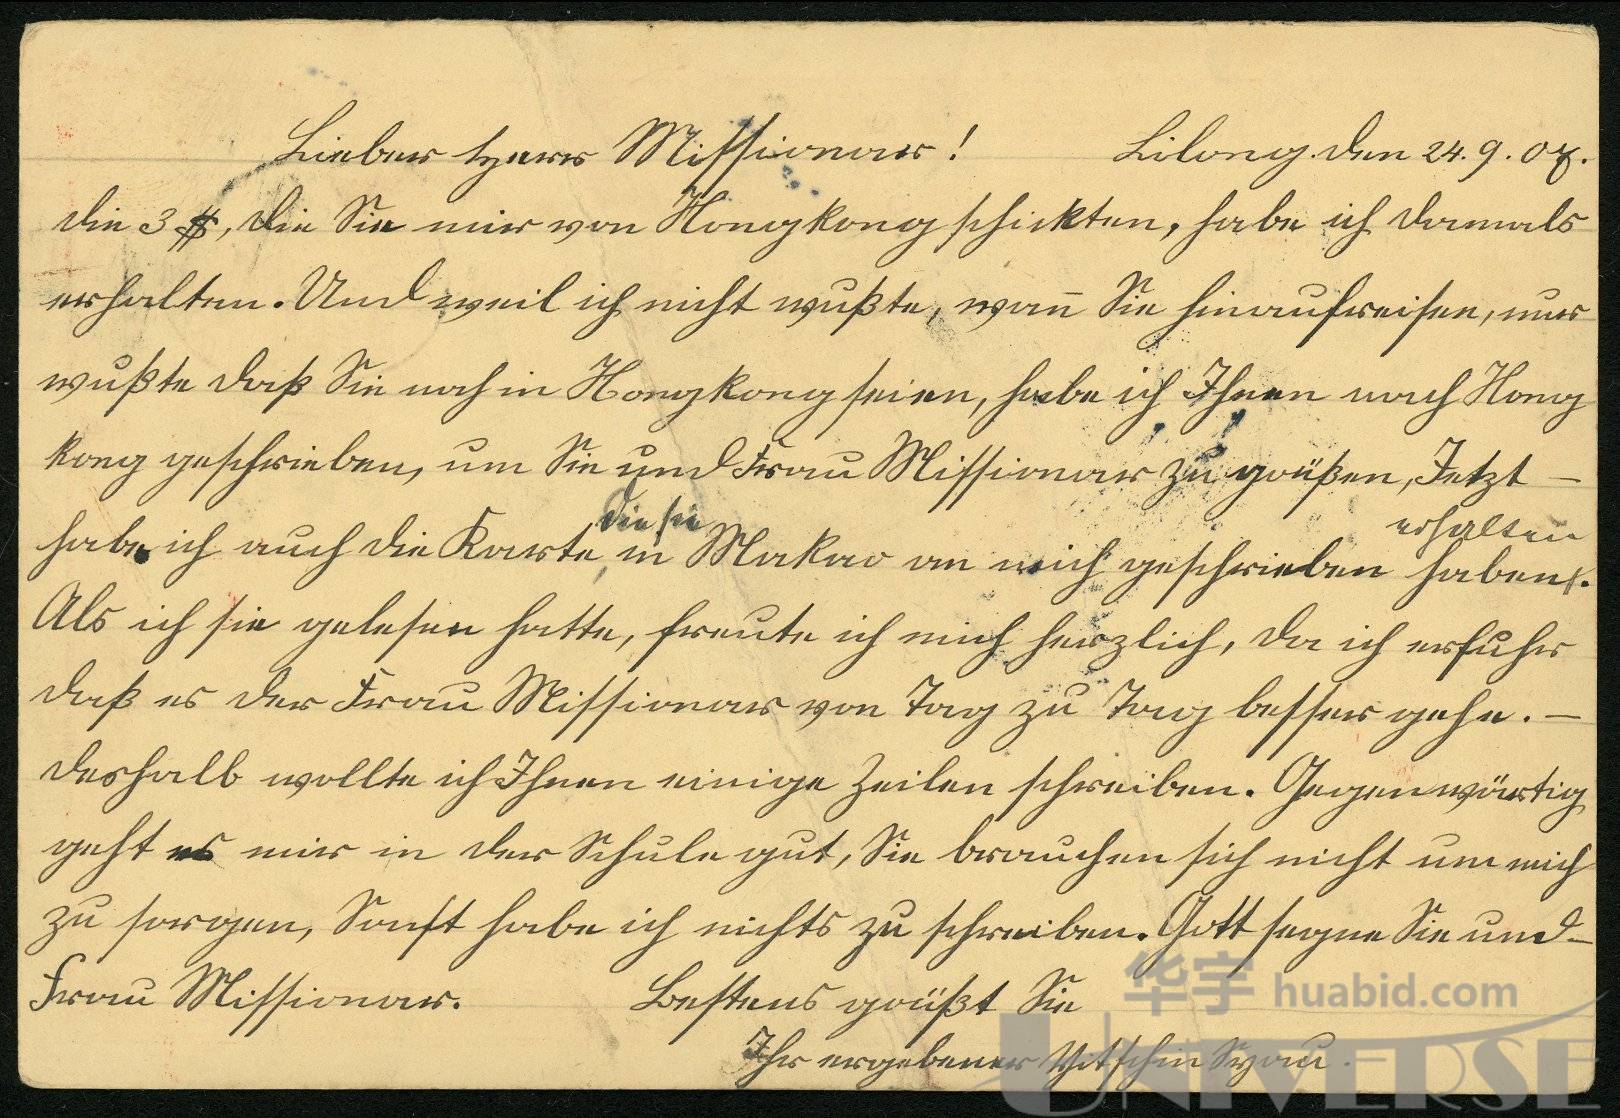 Lieber Herr Missionar! Lilong. den 24. 9. 07.
die 3 $, die Sie mir von Hongkong schickten, habe ich damals
erhalten. Und weil ich nicht wußte, wan̄ Sie hinaufreisen, nur
wußte daß Sie noch in Hongkong seien, habe ich Ihnen nach Hong
kong geschrieben, um Sie und Frau Missionar zu grüßen, Jetzt –
die sie erhalten
habe ich auch die Karte, in Makao an mich geschrieben haben.
Als ich sie gelesen hatte, freute ich mich herzlich, da ich erfuhr
daß es der Frau Missionar von Tag zu Tag besser gehe. –
deshalb wollte ich Ihnen einige Zeilen schreiben. Gegenwärtig
geht es mir in der Schule gut, Sie brauchen sich nicht um mich
zu sorgen, Sonst habe ich nichts zu schreiben. Gott segne Sie und –
Frau Missionar. Bestens grüßt Sie
Ihr ergebener
华宇 huabid.com
UNIVERSE